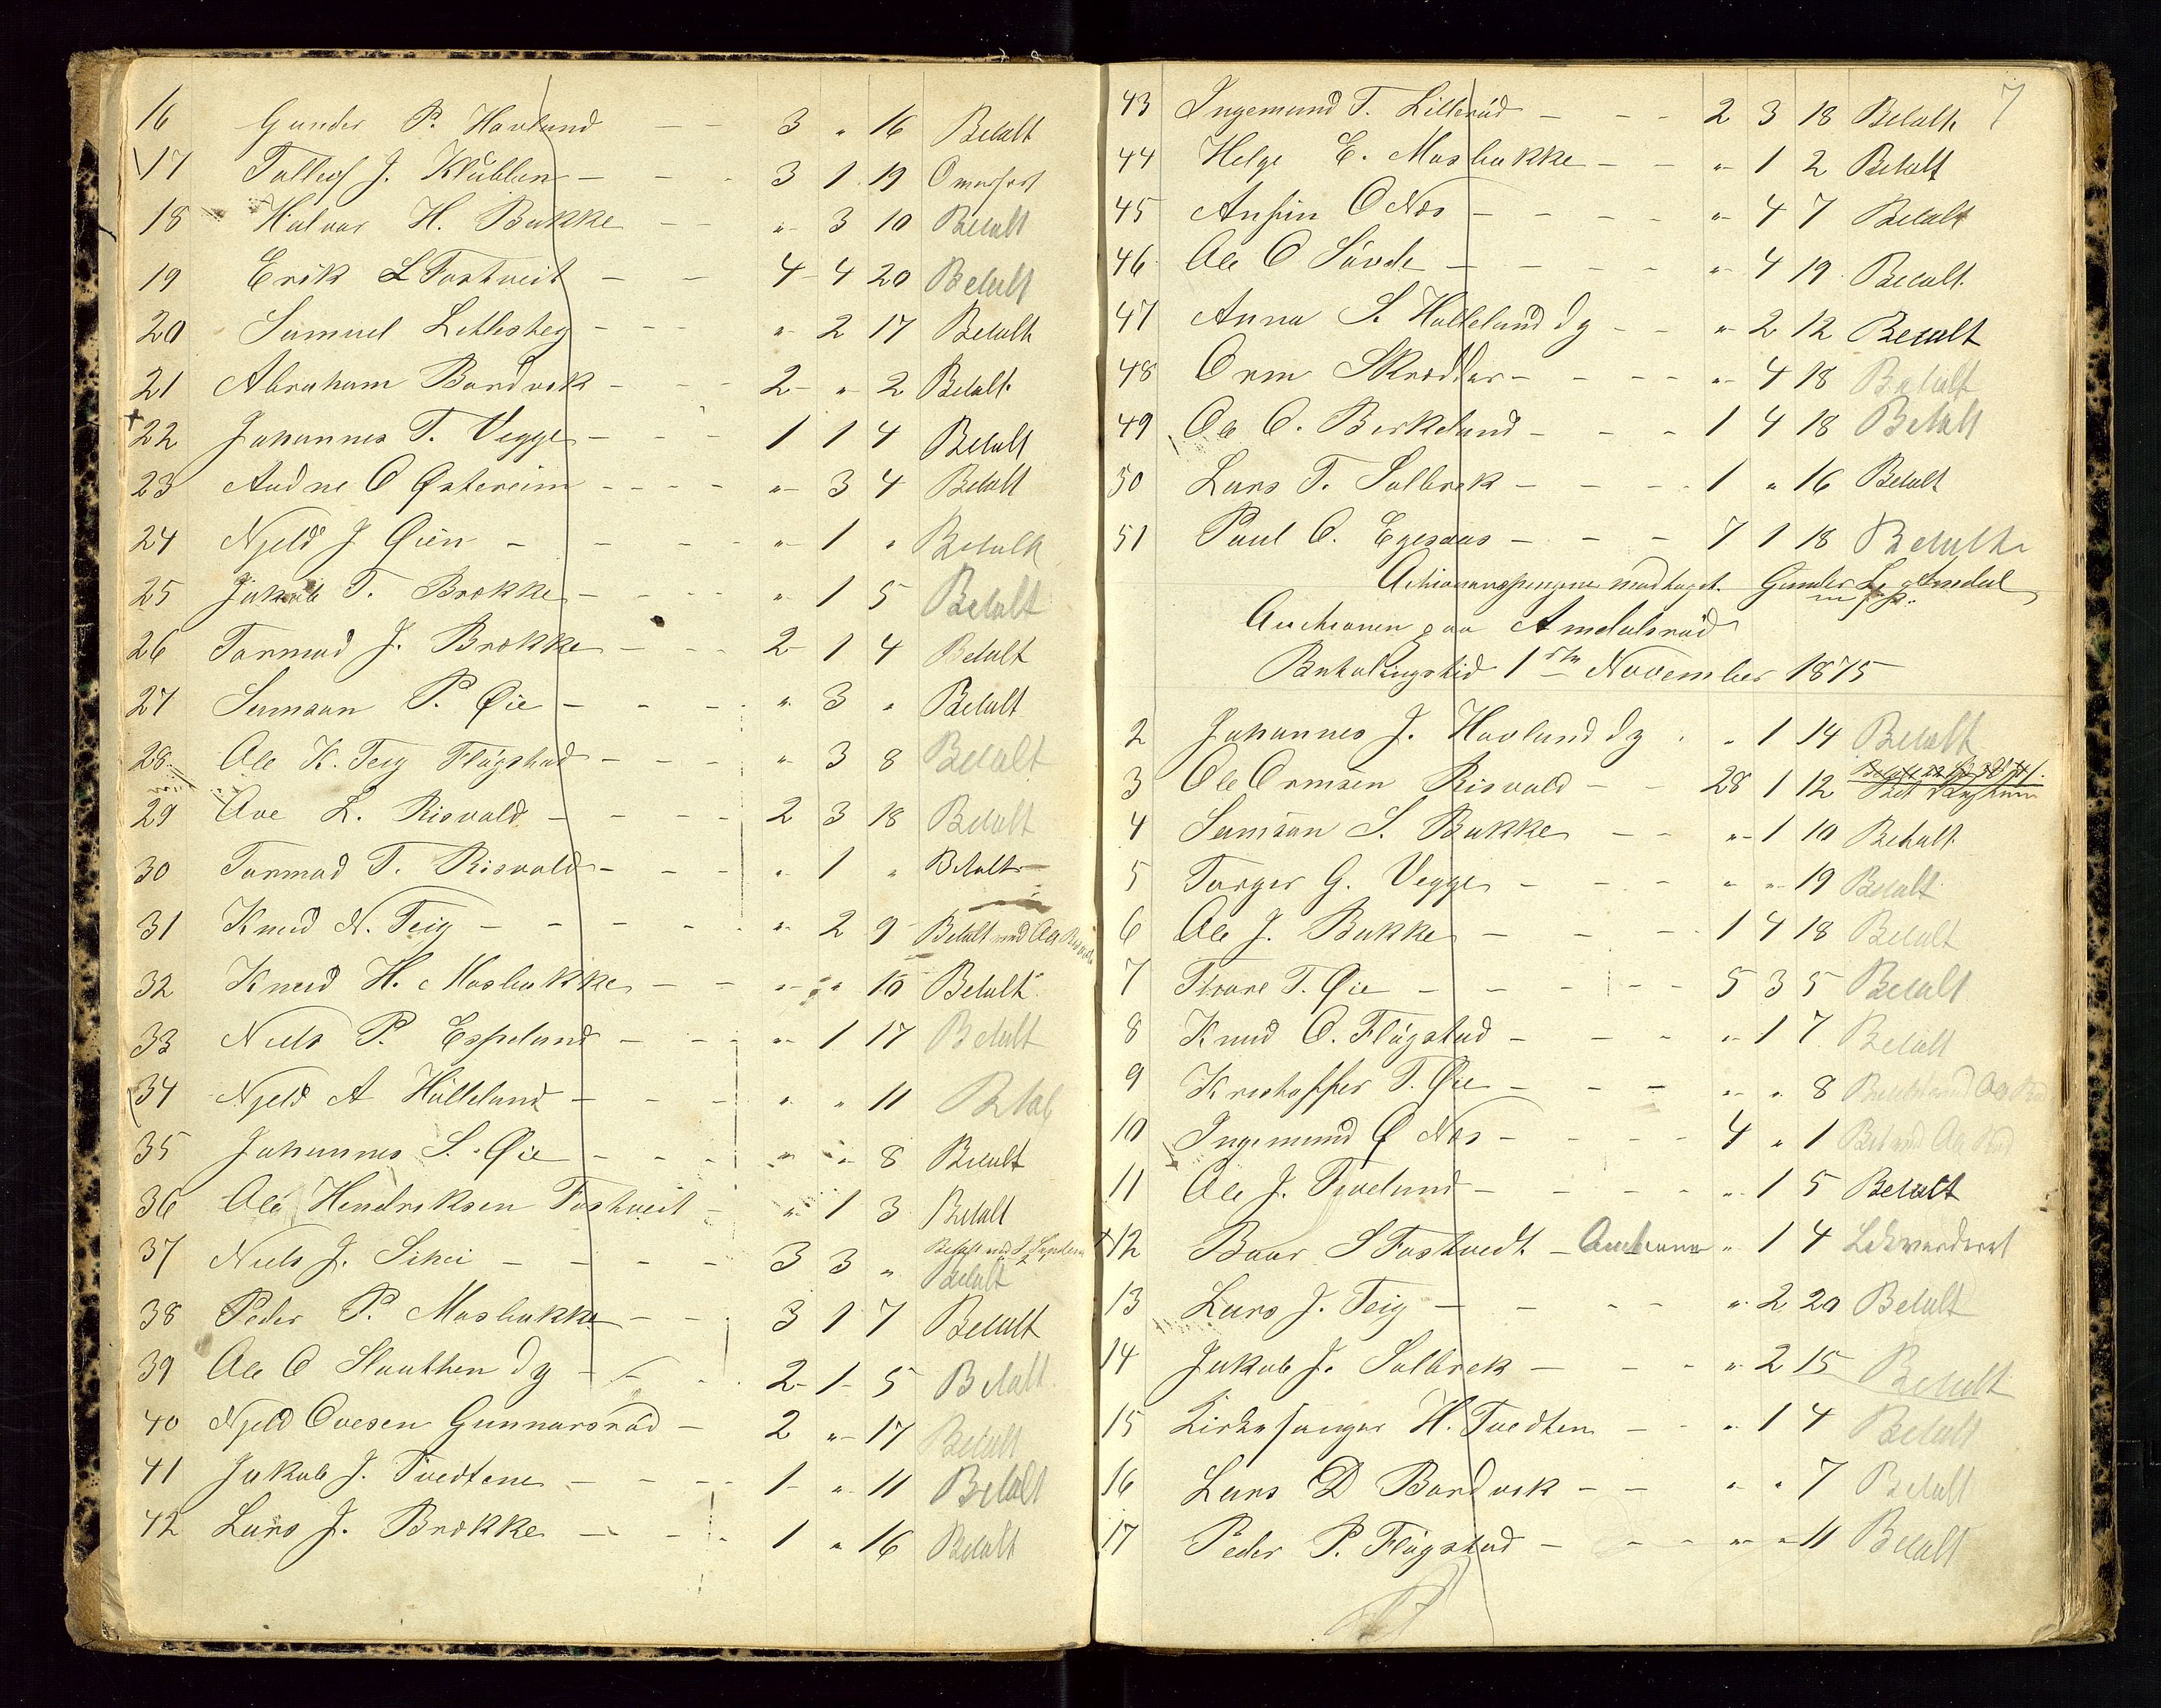 16 Gunder P. Havland - - 3 " 16 Betalt
17 Tallef J. Klubben - - - 3 1 19 Omerført
18 Halvor H. Bakke - - " 3 10 Betalt
19 Erik L Tostveit - - 4 4 20 Betalt
20 Samuel - - - " 2 17 Betalt
21 Abraham Bordvik - - - 2 " 2 Betalt
22 Johannes T. Vegge - - - 1 1 4 Betalt
23 Audne O Østereim - - - - " 3 4 Betalt
24 Njeld J Øien - - - - " 1 " Betalt
25 Jakob T. Brokke - - - - " 1 5 Betalt
26 Tormod J. Brokke - - - 2 1 4 Betalt
27 Samson P. Øie - - - - " 3 " Betalt
28 Ole K. Teig Fløgstad - - - " 3 8 Betalt
29 Ove L. Risvold - - - - 2 3 18 Betalt
30 Tormod T. Risvold - - - " 1 " Betalt
31 Knud N. Teig - - - - - " 2 9 Betalt med Aa
32 Knud H. Mosbakke - - " " 10 Betalt
33 Niels P. Espeland - - - " 1 17 Betalt
34 Njeld A Hølleland - - - " " 11 Betal
35 Johannes S. Øie - - - " " 8 Betalt
36 Ole Hendriksen Tostveit - " 1 3 Betalt
37 Niels J. - - - - 3 3 " Betalt
38 Peder P. Mosbakke - - - 3 1 7 Betalt
39 Ole O Slaathen dy - - - 2 1 5 Betalt
40 Njeld Ovesen Gunnarsrød - 2 " 17 Betalt
41 Jakob J. Tvedtene - - - - 1 " 11 Betalt
42 Lars J. Brokke - - - 1 " 16 Betalt
7
43 Ingemund T. Lillerød - - - 2 3 18 Betalt
44 Helge E. Mosbakke - - " 1 2 Betalt
45 Anfin O Næs - - - - " 4 7 Betalt
46 Ole O - - - - " 4 19 Betalt
47 Anna S. Hølleland dy - - " 2 12 Betalt
48 Orm Skrødder - - - - " 4 18 Betalt
49 Ole O. Birkeland - - - 1 4 18 Betalt
50 Lars T. Solbrek - - - - 1 " 16 Betalt
51 Paul O. Egesaas - - - 7 1 18 Betalt
modtaget. Gunder L. Amdal
Auctionen paa Amdalsrød
Betalingstid 1ste November 1875
2 Johannes J. Havland dy - " 1 14 Betalt
3 Ole Ormsen Risvold - - 28 1 12
4 Samson S. Bakke - - " 1 10 Betalt
5 Torger G. Vegge - - - " " 19 Betalt
6 Ole J. Bakke - - - 1 4 18 Betalt
7 Thore T. Øie - - - - - 5 3 5 Betalt
8 Knud O. Fløgstad - - - " 1 7 Betalt
9 Kristoffer T. Øie - - - " " 8
10 Ingemund O Næs - - - - 4 " 1
11 Ole J. Træland - - - - " 1 5 Betalt
12 Baar S Tostvedt - Auctionen " 1 4
13 Lars J. Teig - - - - " 2 20 Betalt
14 Jakob J. Solbrek - - - " 2 15 Betalt
15 Kirkesanger H. Tvedten - - " 1 4 Betalt
16 Lars D Bordvik - - " " 7 Betalt
17 Peder P. Fløgstad - - - " " 11 Betalt